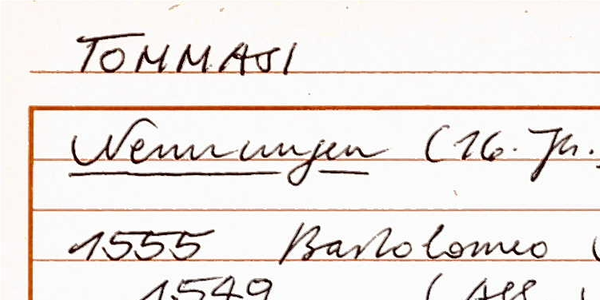 TOMMASI
Nennungen (16. Jh.
1555 Bartolomeo (
1549 (